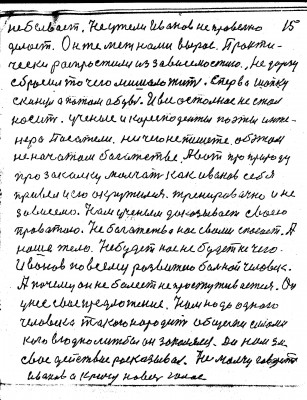 небывает. Неужели Иванов не правильно 15
делает. Он же меж нами вырос. Практи-
чески распростился из зависимостию, не
сбросил то чего мешало жить. Сперва шапку
скинул а потом обувь. И все остальное не стал
носить. ученые и коресподенты поэты инже-
нера Писатели. ничего не пишете. об этом
не начатом богатстве. А вот про природу
про закалку молчат как Иванов себя
привел и с ею окружился. тренировачно и не
зависемо. Нам ученым доказывает своего
правотою. Не богатство нас своим спасает. А
наше тело. Не будет нас не будет не чего.
Иванов по всему развитию больной человек.
А почему он не болеет не простуживается. Он
у нас свое предложение. Нам надо одного
человека такого народить общими силами
кого в одно литьбы он закалялся. Он нам за
свое действие рассказывал. Не молчу говорить
Иванов а кричу новый голос